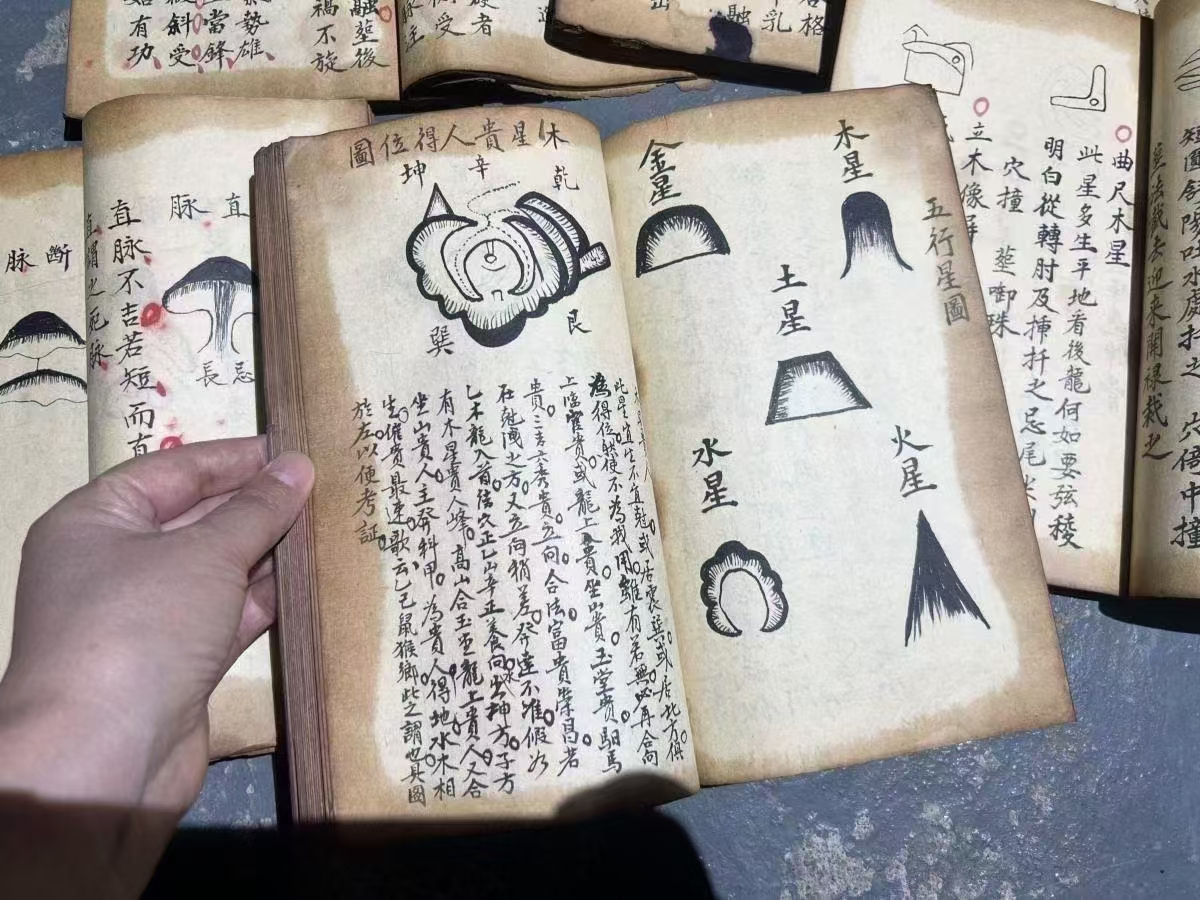 曲尺木星
此星多生平地看後龍何如要弦稜
明白從轉肘及揷扦之忌尾
立木像屏
穴撞 塟啣珠
五行星圖
木星
金星
土星
火星
水星
木星貴人得位圖
乾
辛
坤
艮
巽
此星宜生不宜尅。或居震巽。或居北方俱
為得位然使不為我用。雖有若無。必再合向
上臨官貴。或龍上貴。坐山貴。玉堂貴。馹馬
貴。三吉六秀貴。立向合法富貴榮昌。若
在尅洩之方。又立向稍差。發達不准。假如
乙木龍入首結穴正乙山辛正養向。水出坤方。子方
有木星貴人峰。高山合玉堂。龍上貴人。又合
坐山貴人主發科甲。為貴人得地。水木相
生。催貴最速。歌云乙己鼠猴鄉。此之謂也。具圖
於左以便考証。
直脉
忌長
直脉不吉若短而直
直謂之死脉
断脉
融塟後
禍不旋
勢雄
當鋒
斜受
有功